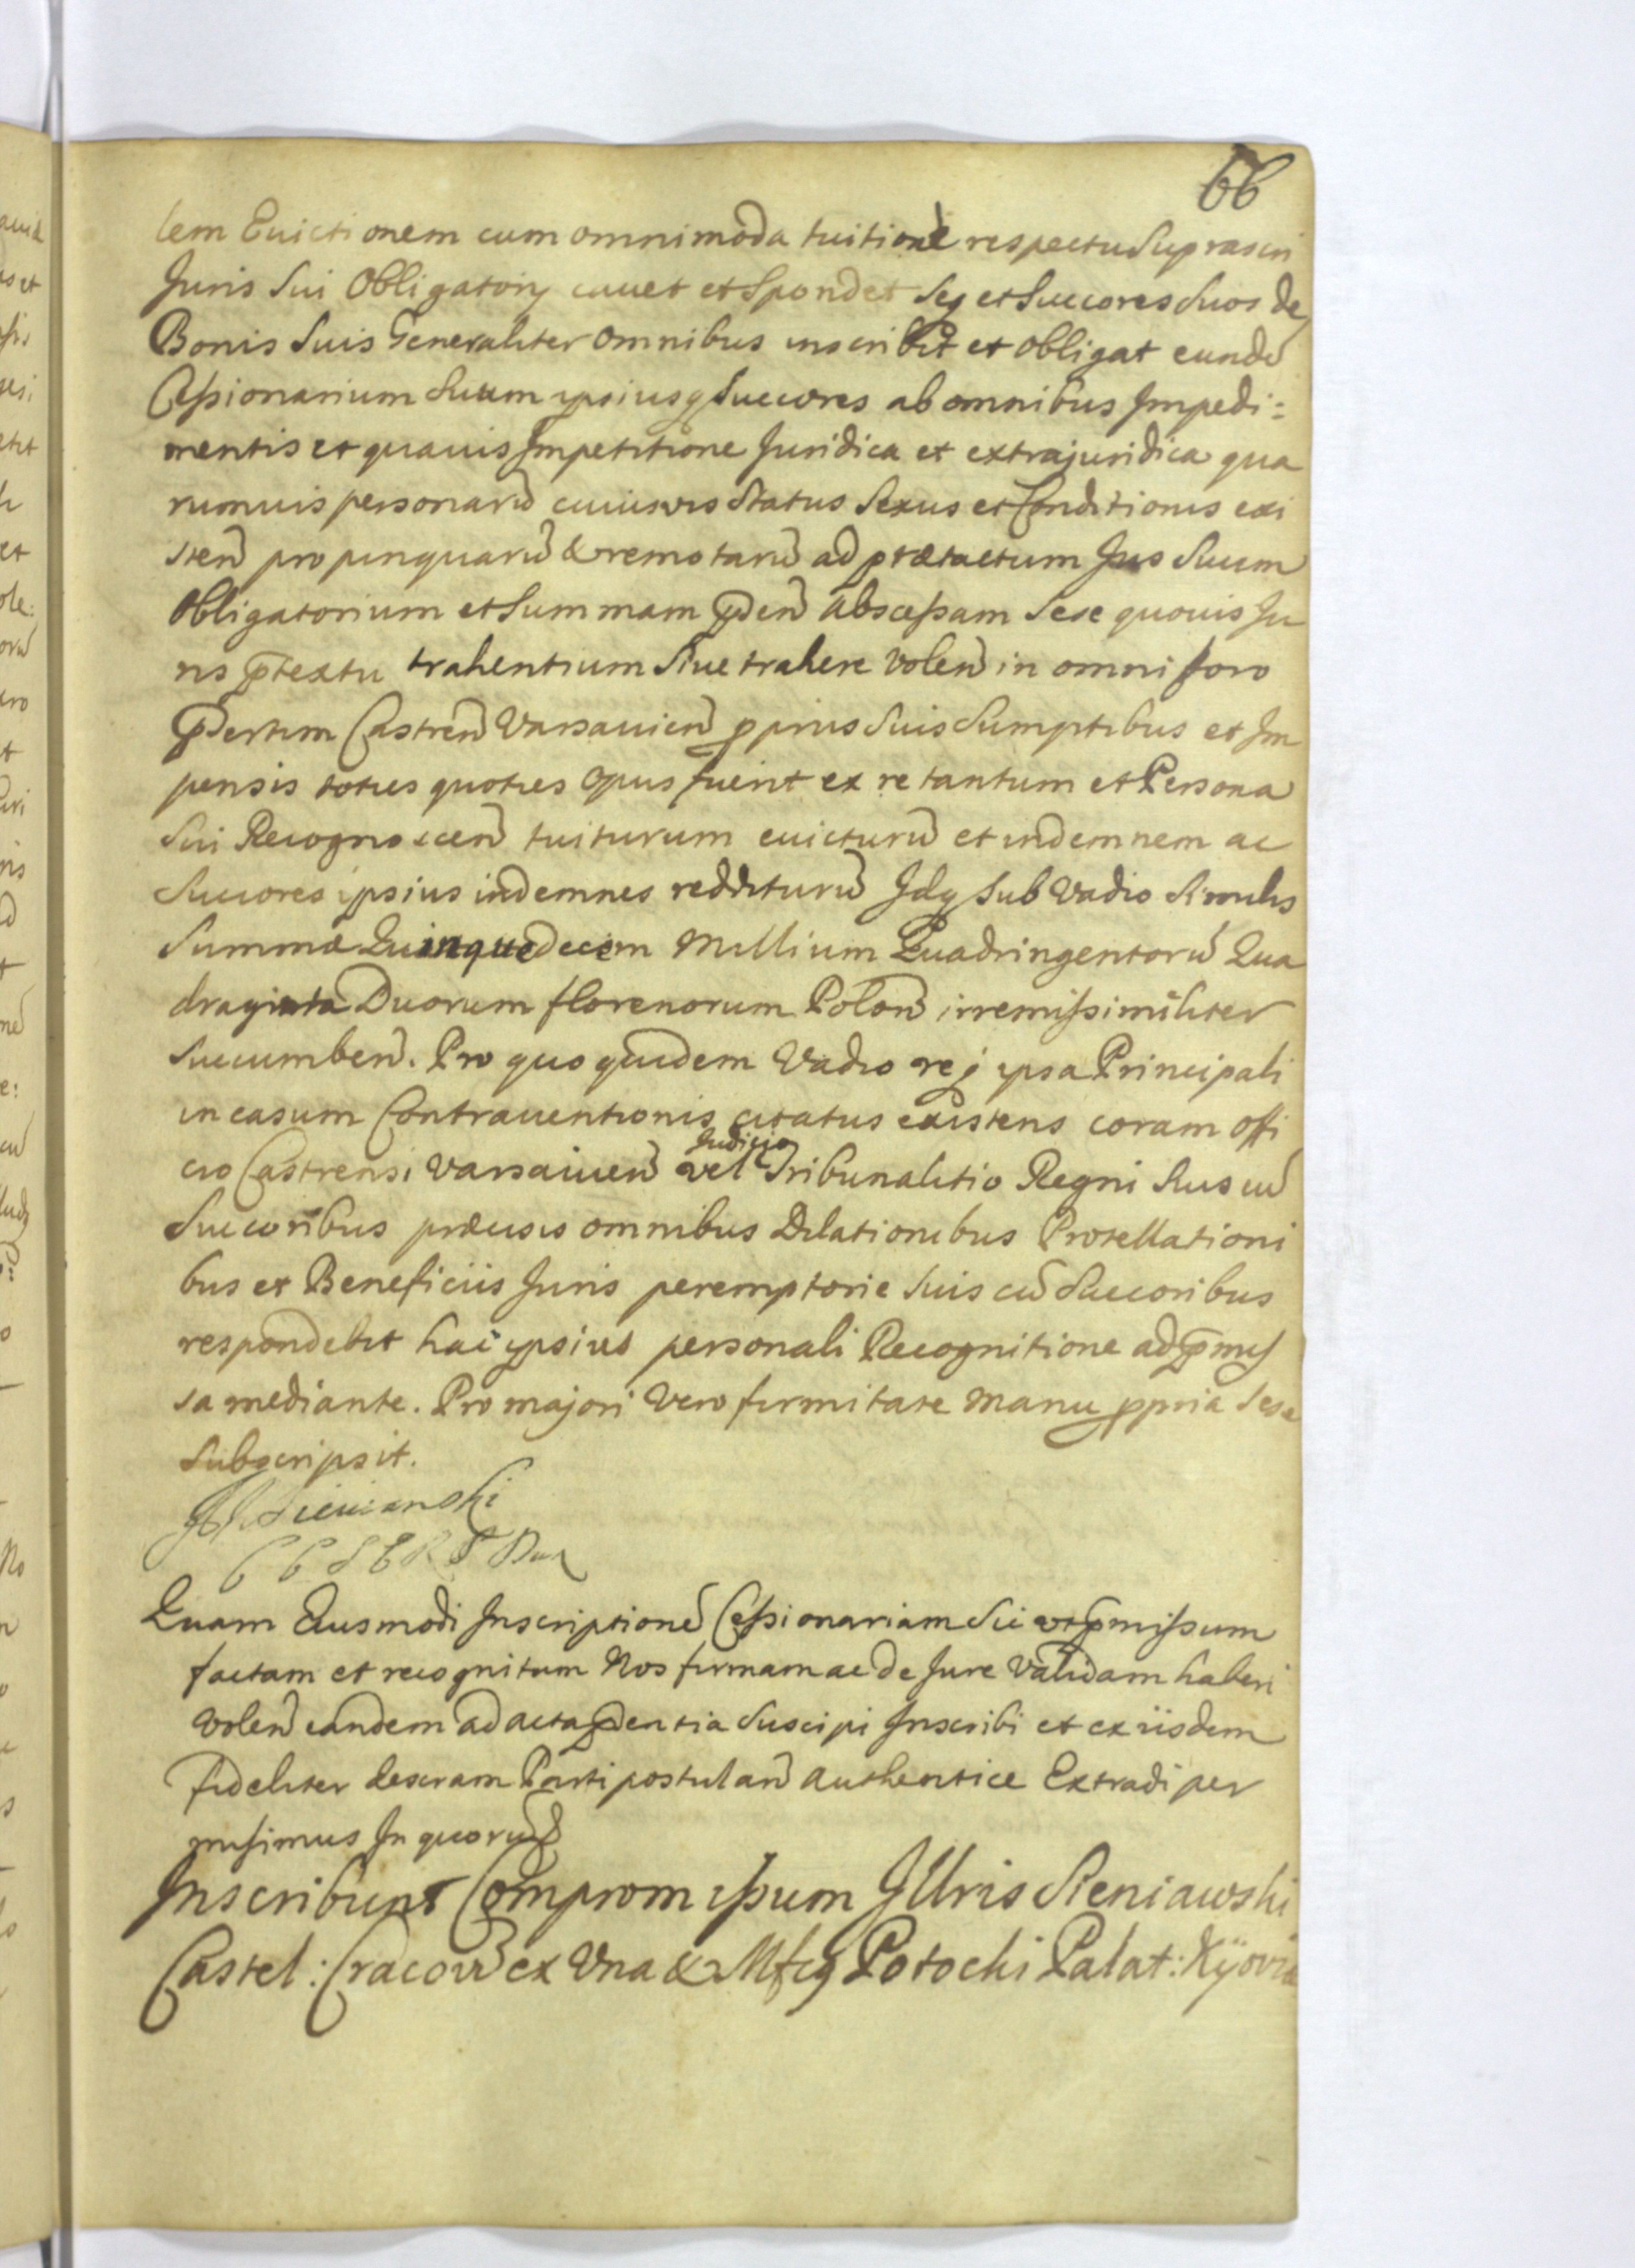 66
lem Evictionem cum omnimoda tuitione respectu Suprascri
Juris Sui Obligatorij cavet et Spondet Seq et Succores Suos de
Bonis Suis Generaliter omnibus inscribit et obligat eundē
Cessionarium Suum ipsiusq Succores ab omnibus Impedi=
mentis et quavis Impetitione Juridica et extrajuridica qua
rumvis personarū cuiusvis Status Sexus et Conditionis exi
sten̄ propinquarū & remotarū ad prætactum Jus Suum
Obligatorium et Summam p̄den̄ abscessam Sese quovis Ju
ris p̄textu trahentium Sive trahere volen̄ in omni foro
p̄sertim Castren̄ Varsavien̄ pprius Suis Sumptibus et Im
pensis toties quoties opus fuerit ex re tantum et Persona
Sui Recognoscen̄ tuiturum evicturū et indemnem ac
Succores ipsius indemnes redditurū Idq Sub Vadio Similis
Summæ Quinquedecem Millium Quadringentorū Qua
draginta Duorum florenorum Polon̄ irremissimiliter
Succumben̄. Pro quo quidem Vadio req ipsa Principali
in casum Contraventionis citatus existens coram offi
cio Castrensi Varsavien̄ vel Judicio Tribunalitio Regni Suis cū
Succoribus præcisis omnibus Dilationibus Protellationi
bus et Beneficiis Juris peremptorie Suis cū Succoribus
respondebit hac ipsius personali Recognitione ad p̄mis
sa mediante. Pro majori vero firmitate manu ppria Sese
Subscripsit.
Sieniawski
Quam Eiusmodi Inscriptionē Cessionariam Sic ut p̄missum
factam et recognitam Nos firmam ac de Jure validam haberi
volen̄ eandem ad acta p̄dentia Suscipi Inscribi et ex iisdem
fideliter descram Parti postulan̄ authentice Extradi per
misimus In quorū &
Inscribunt Compromissum Illris Sieniawski
Castel: Cracov̄ ex Una & Mfcq Potocki Palat: Kijoviæ